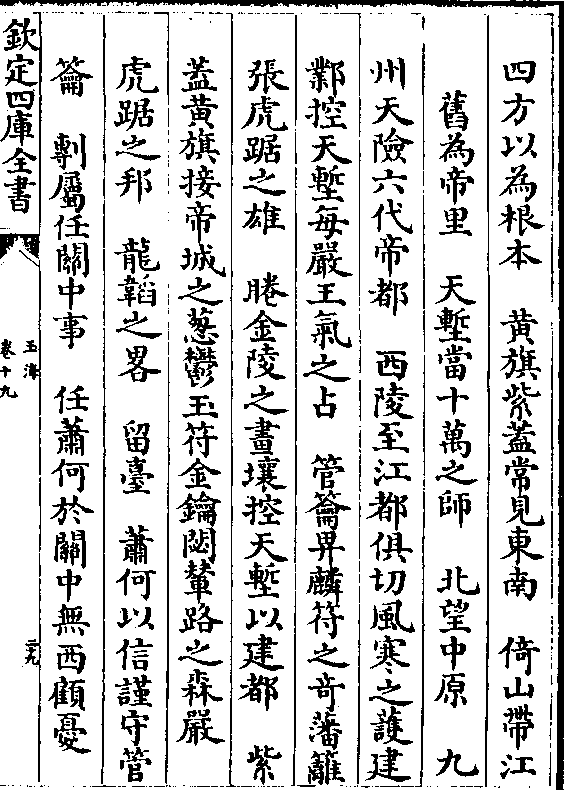 四方以為根本　黃旗紫蓋常見東南　倚山帶江
舊為帝里　天塹當十萬之師　北望中原　九
州天險六代帝都　西陵至江都俱切風寒之護建
鄴控天塹每嚴王氣之占　管籥畀麟符之奇藩籬
張虎踞之雄　睠金陵之畫壤控天塹以建都　紫
蓋黃旗接帝城之葱鬱玉符金鑰閟輦路之森嚴
虎踞之邦　龍韜之畧　留臺　蕭何以信謹守管
籥　剸屬任關中事　任蕭何於關中無西顧憂
欽定四庫全書
玉海
卷十九
三九